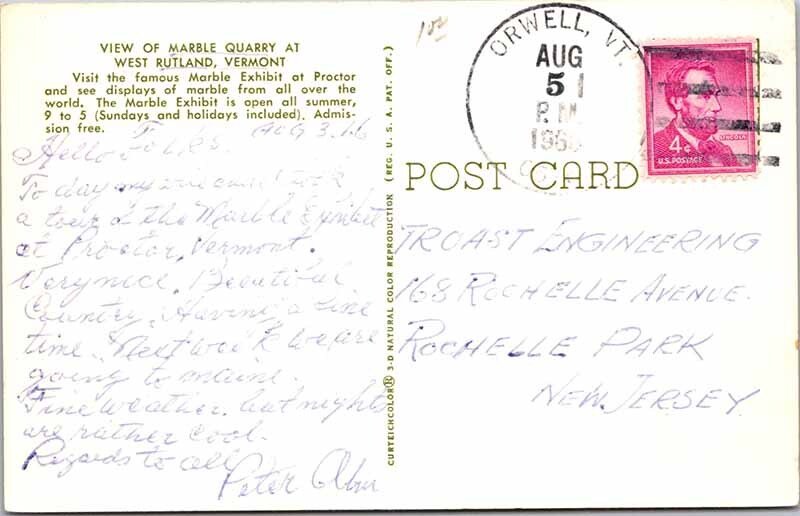 VIEW OF MARBLE QUARRY AT
WEST RUTLAND, VERMONT
Visit the famous Marble Exhibit at Proctor
and see displays of marble from all over the
world. The Marble Exhibit is open all summer,
9 to 5 (Sundays and holidays included). Admis-
sion free.
AUG 3.
Hello Folks.
To day my wife and I took
a tour of the Marble Exhibit
at Proctor, Vermont.
Very nice. Beautiful
Country. Having a fine
time. Next week we are
going to maine.
Fine weather, but nights
are rather cool.
Regards to all
Peter
CURTEICHCOLOR® 3-D NATURAL COLOR REPRODUCTION (REG. U. S. A. PAT. OFF.)
ORWELL, VT.
AUG
5
P.M.
POST CARD
LINCOLN
4¢
U.S. POSTAGE
TROAST ENGINEERING
168 ROCHELLE AVENUE.
ROCHELLE PARK
NEW JERSEY